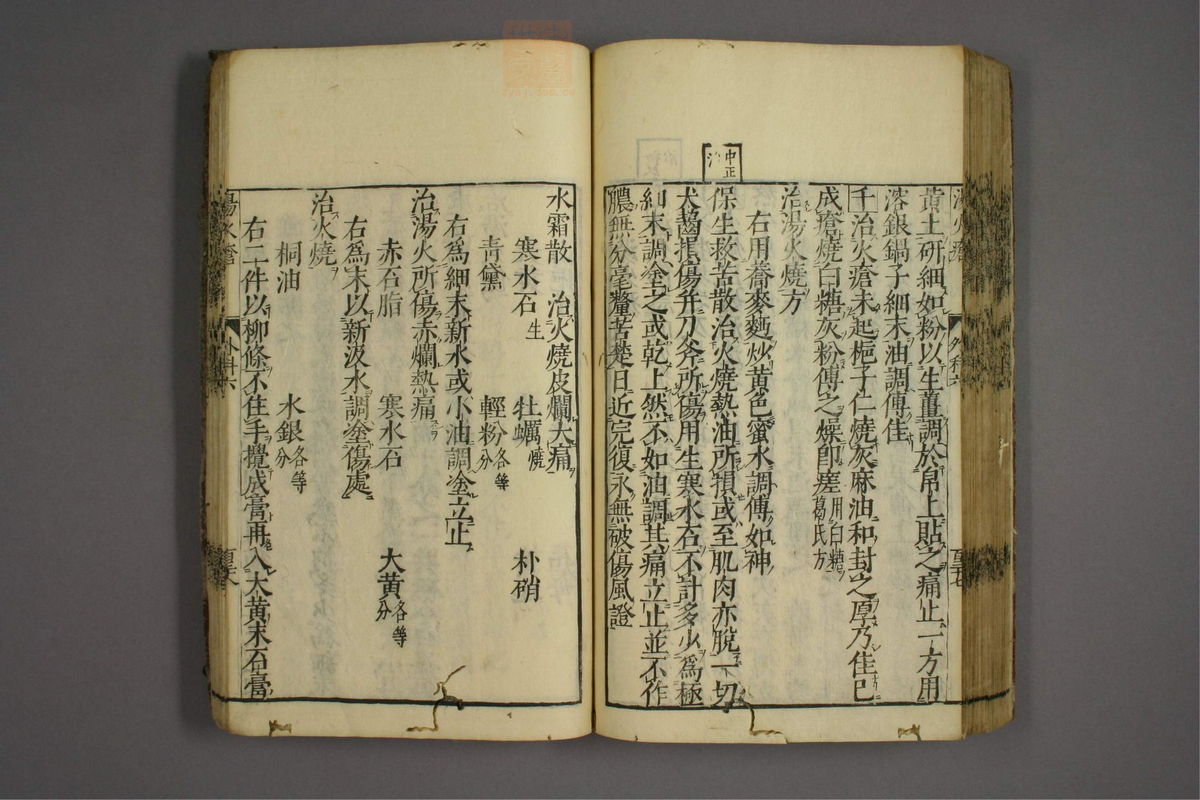 中正
治
黃土研細如粉以生薑調於帛上貼之痛止一方用
溶銀鍋子細末油調傅佳
千治火瘡未起梔子仁燒灰麻油和封之厚乃佳已
成瘡燒白糖灰粉傅之燥卽瘥用白糖葛氏方
治湯火燒方
右用蕎麥麪炒黃色蜜水調傅如神
保生救苦散治火燒熱油所損或至肌肉亦脫一切
犬齧損傷并刀斧所傷用生寒水石不計多少爲極
細末調塗之或乾上然不如油調其痛立止並不作
膿無分毫釐苦楚日近完復永無破傷風證
水霜散 治火燒皮爛大痛
寒水石生 牡蠣燒 朴硝
青黛 輕粉各等分
右爲細末新水或小油調塗立止
治湯火所傷赤爛熱痛
赤石脂 寒水石 大黃各等分
右爲末以新汲水調塗傷處
治火燒
桐油 水銀各等分
右二件以柳條不住手攪成膏再入大黃末石膏
外科六